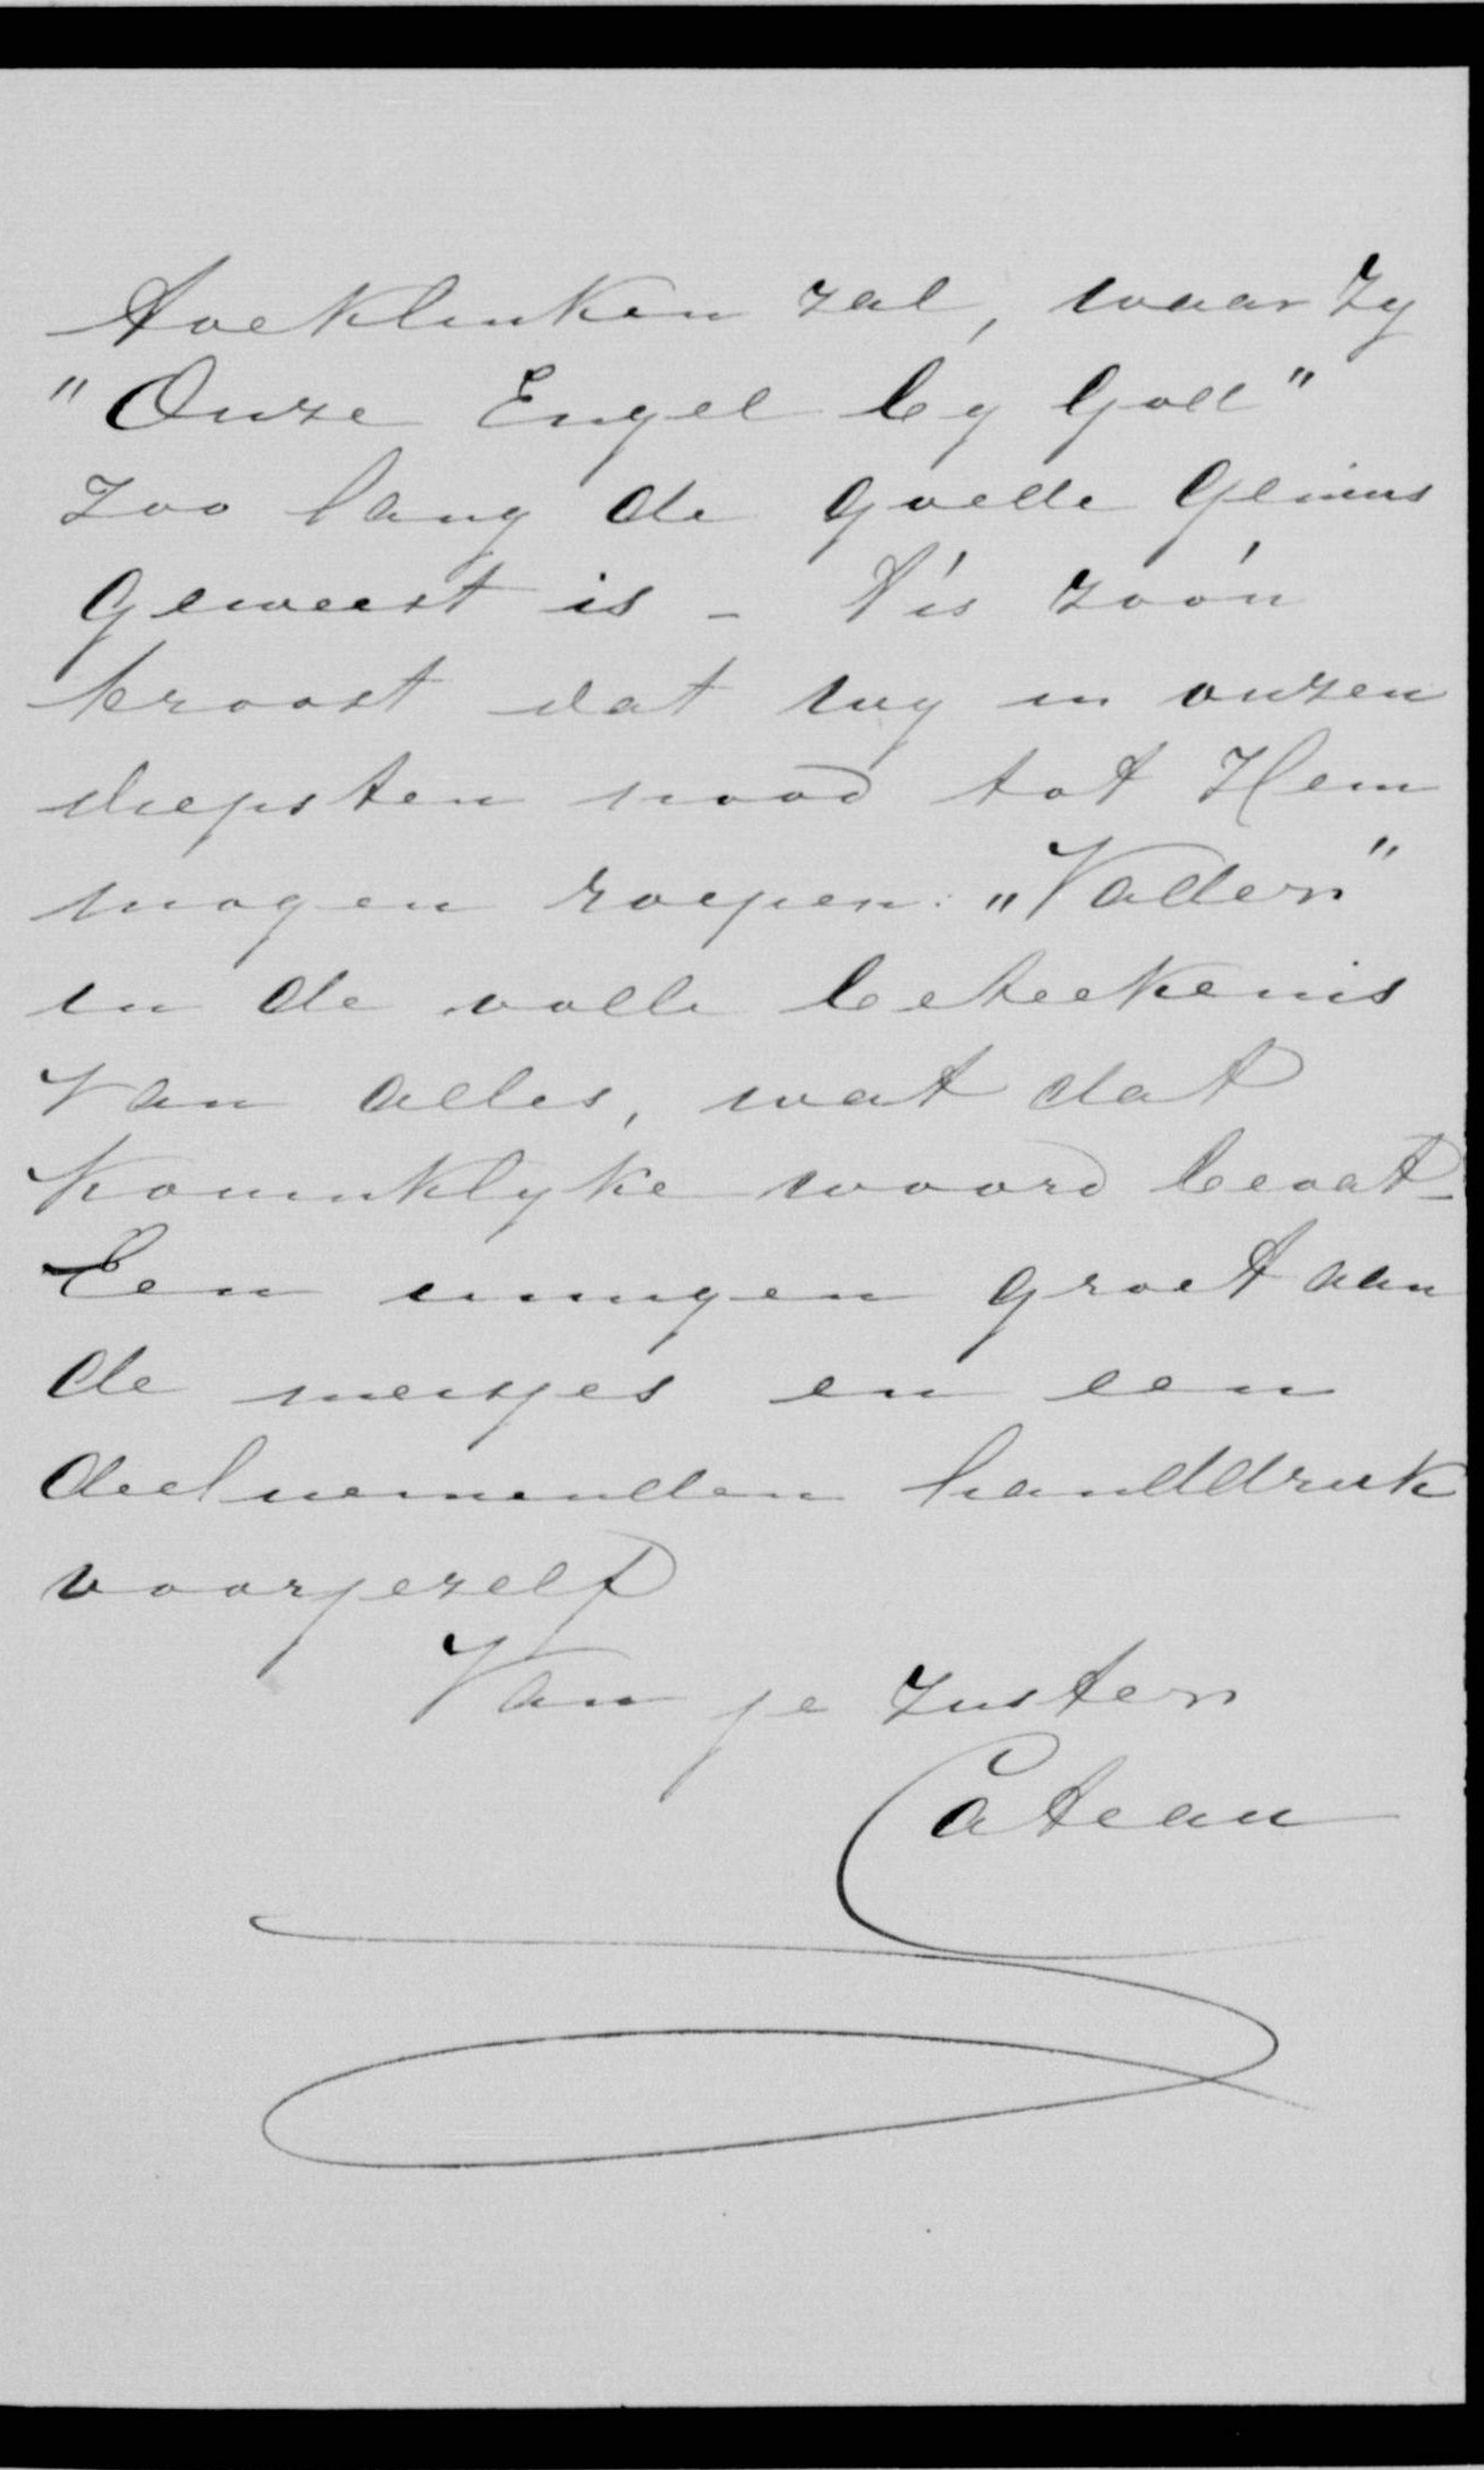 toeklinken zal, waar zy
"Onze Engel by God"
zoo lang de goede Genius
geweest is - 't is zóó'n
troost dat wy in onzen
diepsten nood tot Hem
mogen roepen: „Vader"
in de volle beteekenis
van alles, wat dat
koninklyke woord bevat_
Een innigen groet aan
de meisjes en een
deelnemenden handdruk
voor jezelf
Van je zuster
Cateau